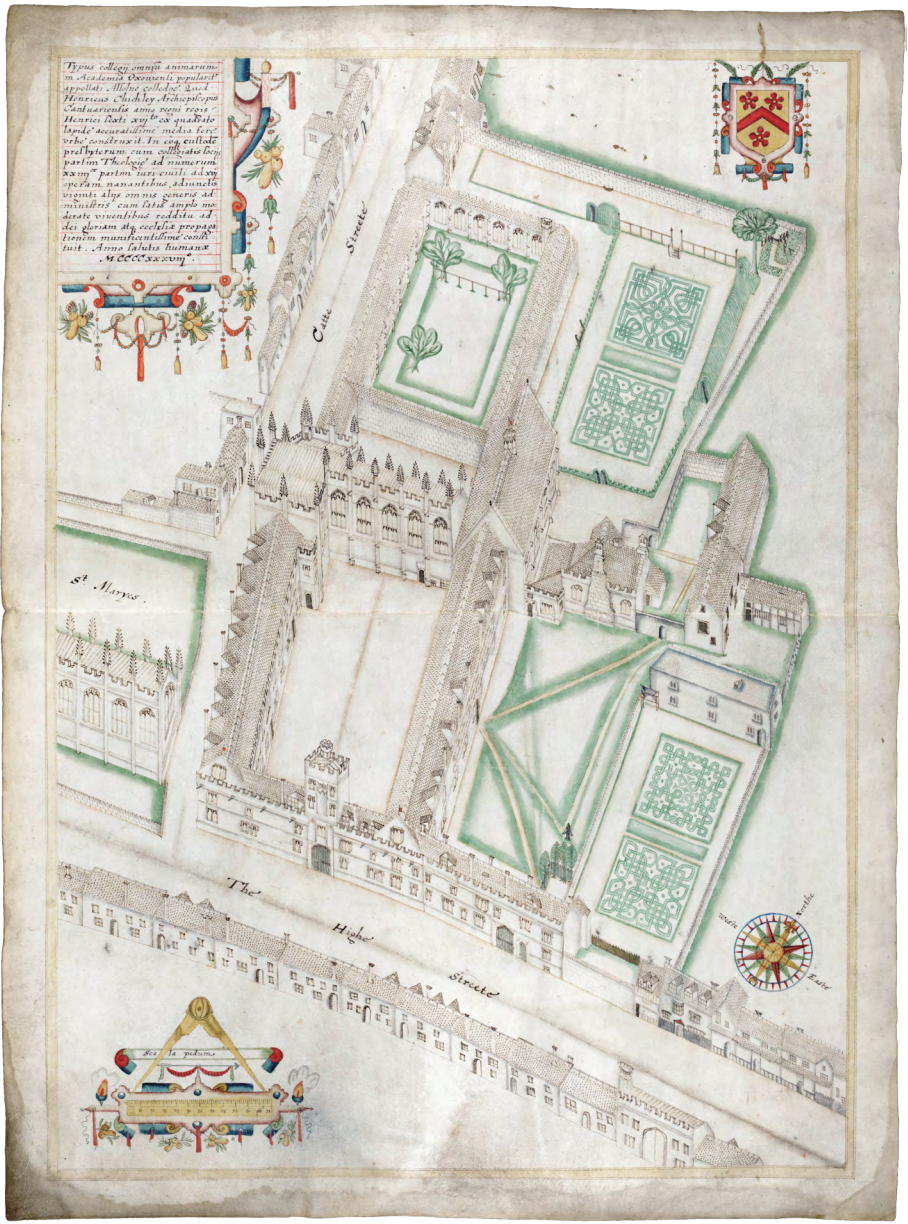 Typus collegij omniũ animarum
in Academia Oxonienti popularitʳ
appellati Alsolne colledge. Quod
Henricus Chichley Archiepiscopus
Cantuariensis anno regni regis
Henrici sexti xvijᵗᵒ ex quadrato
lapide accuratissime media fere
vrbe construxit. In eoq custodẽ
presbyterum cum collegiatis socijs
partim Theologiæ ad numerum
xxiiijᵒʳ partim iuri civili ad xvj
operam navantibus, adiunctis
viginti alijs omnis generis ad
ministris cum satis amplo mo
derate viventibus redditu ad
dei gloriam atq ecclesiæ propaga
tionem munificentissime consti
tuit. Anno salutis humanæ
MCCCCXXXVIIJᵒ.
Catte Streete
Sᵗ Maryes.
The Highe Streete
Northe
Weste
Easte
Scala pedum